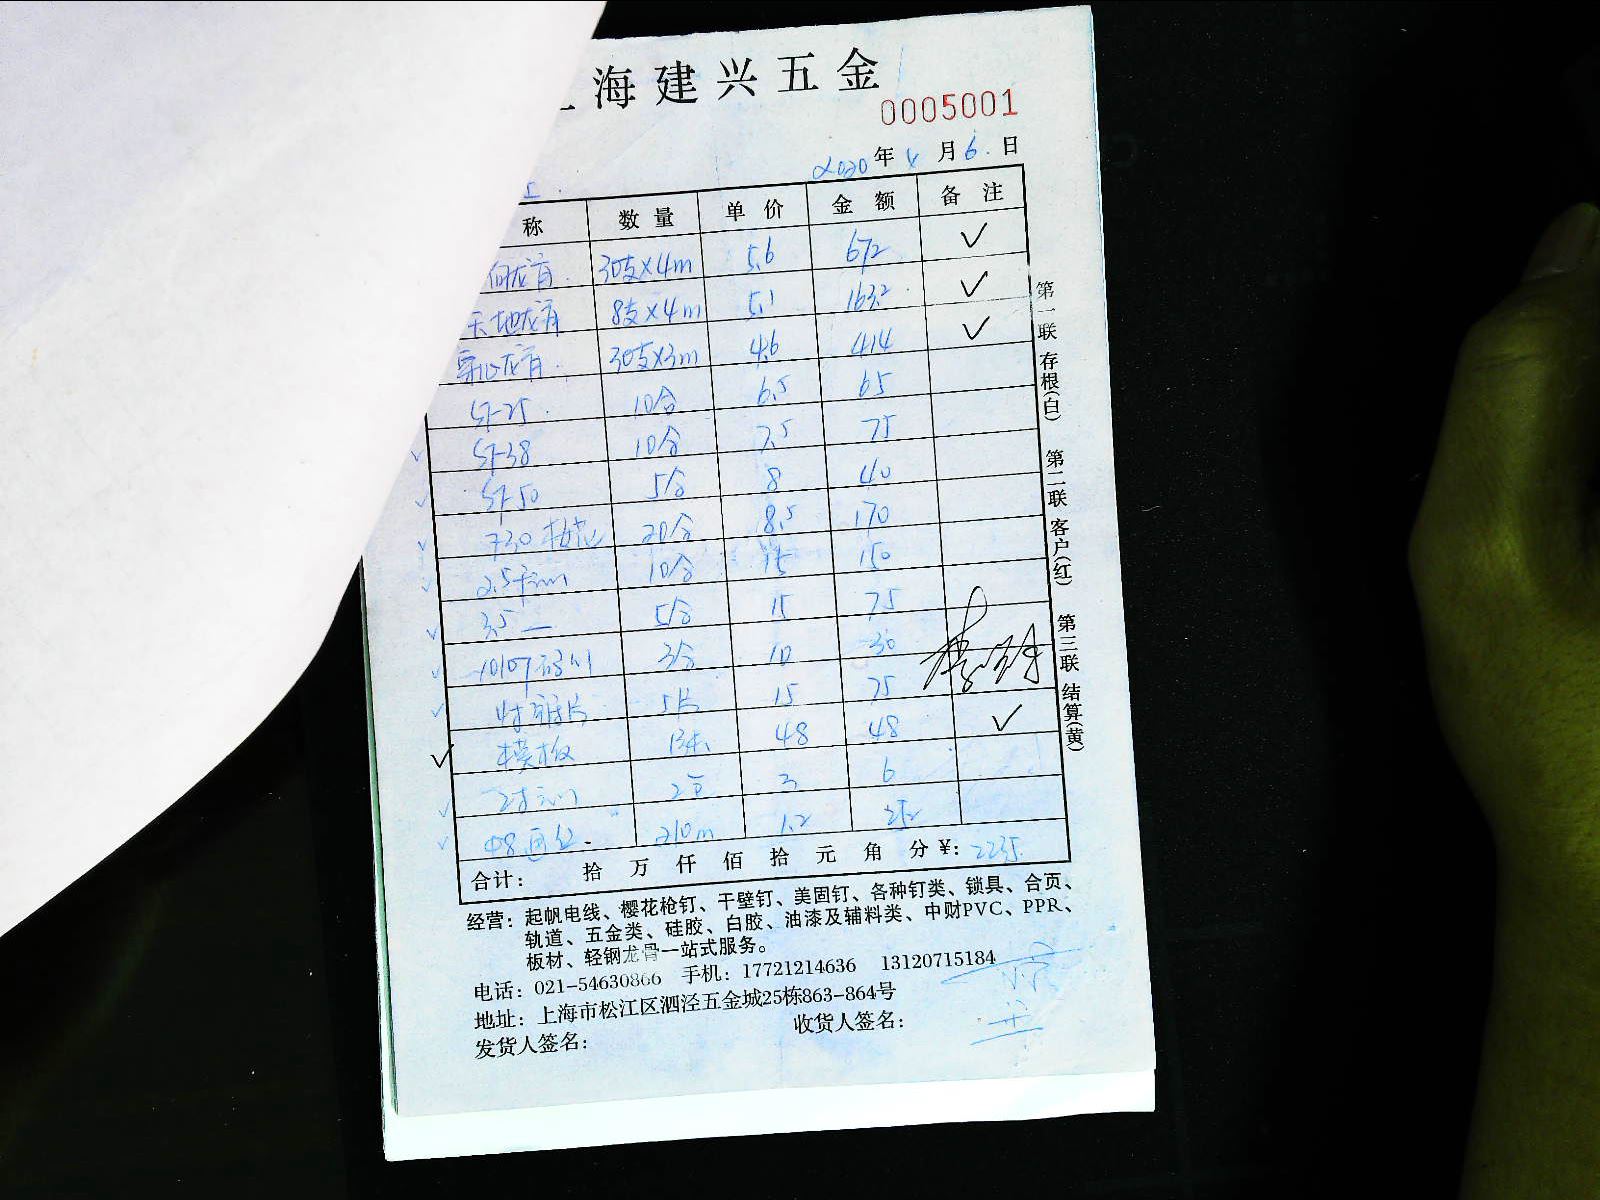 海建兴五金
0005001
2020年4月6.日
称 数量 单价 金额 备注
向龙骨. 30支×4m 5.6 672 ✓
天地龙骨 8支×4m 5.1 163.2 ✓
穿心龙骨. 30支×3m 4.6 414 ✓
ST-25. 10合 6.5 65
ST-38 10合 7.5 75
ST-50 5合 8 40
F30 20合 8.5 170
10合 15 150
3.5 — 5合 15 75
3合 10 30
5片 15 75
模板 48 48 ✓
2 3 6
Φ8 210m 1.2 252
合计: 拾 万 仟 佰 拾 元 角 分 ¥: 2235.
经营: 起帆电线、樱花枪钉、干壁钉、美固钉、各种钉类、锁具、合页、
轨道、五金类、硅胶、白胶、油漆及辅料类、中财PVC、PPR、
板材、轻钢龙骨一站式服务。
电话: 021-54630866 手机: 17721214636 13120715184
地址: 上海市松江区泗泾五金城25栋863-864号
发货人签名: 收货人签名:
第一联 存根(白) 第二联 客户(红) 第三联 结算(黄)